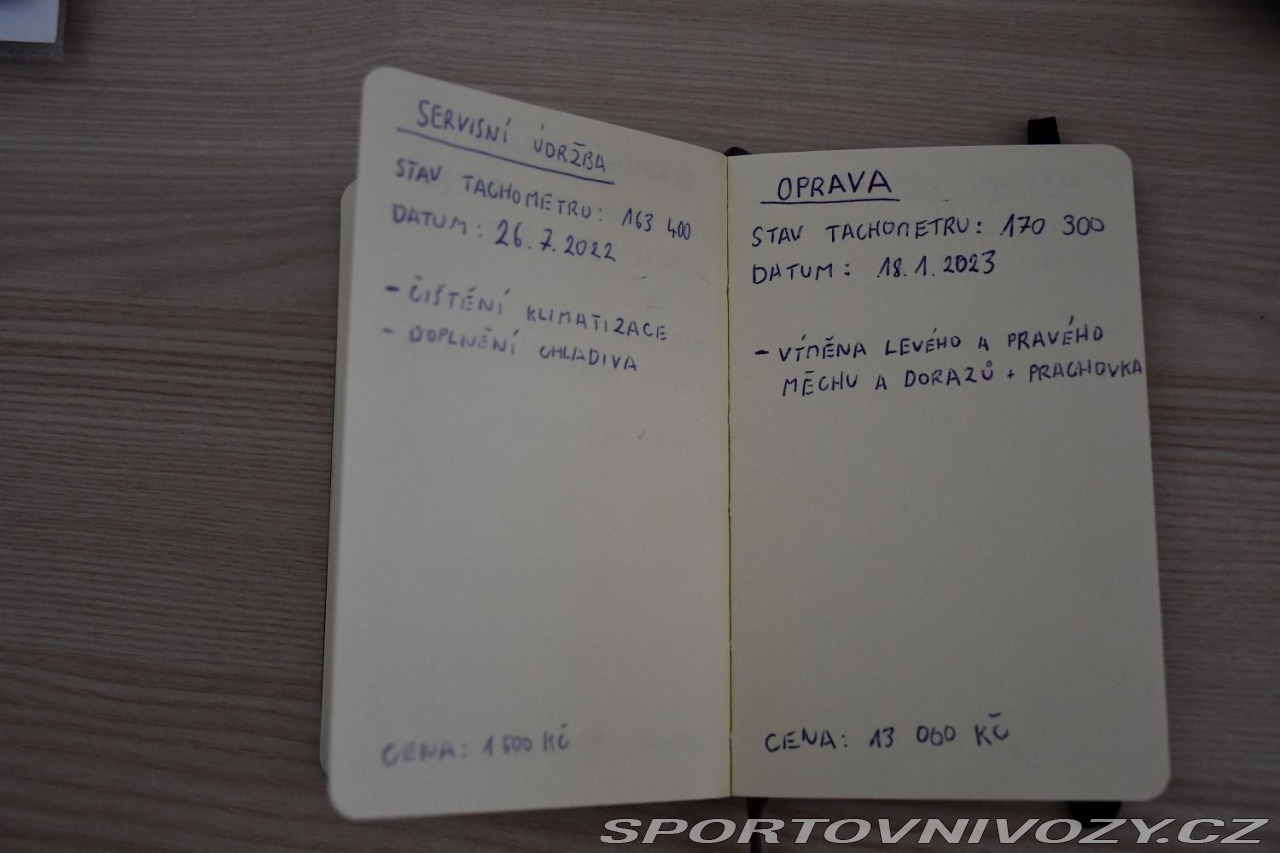 SERVISNÍ ÚDRŽBA
STAV TACHOMETRU: 163 400
DATUM: 26.7.2022
- ČIŠTĚNÍ KLIMATIZACE
- DOPLNĚNÍ CHLADIVA
CENA: 1 500 Kč
OPRAVA
STAV TACHOMETRU: 170 300
DATUM: 18.1.2023
- VÝMĚNA LEVÉHO A PRAVÉHO
MĚCHU A DORAZŮ + PRACHOVKA
CENA: 13 060 Kč
SPORTOVNIVOZY.CZ